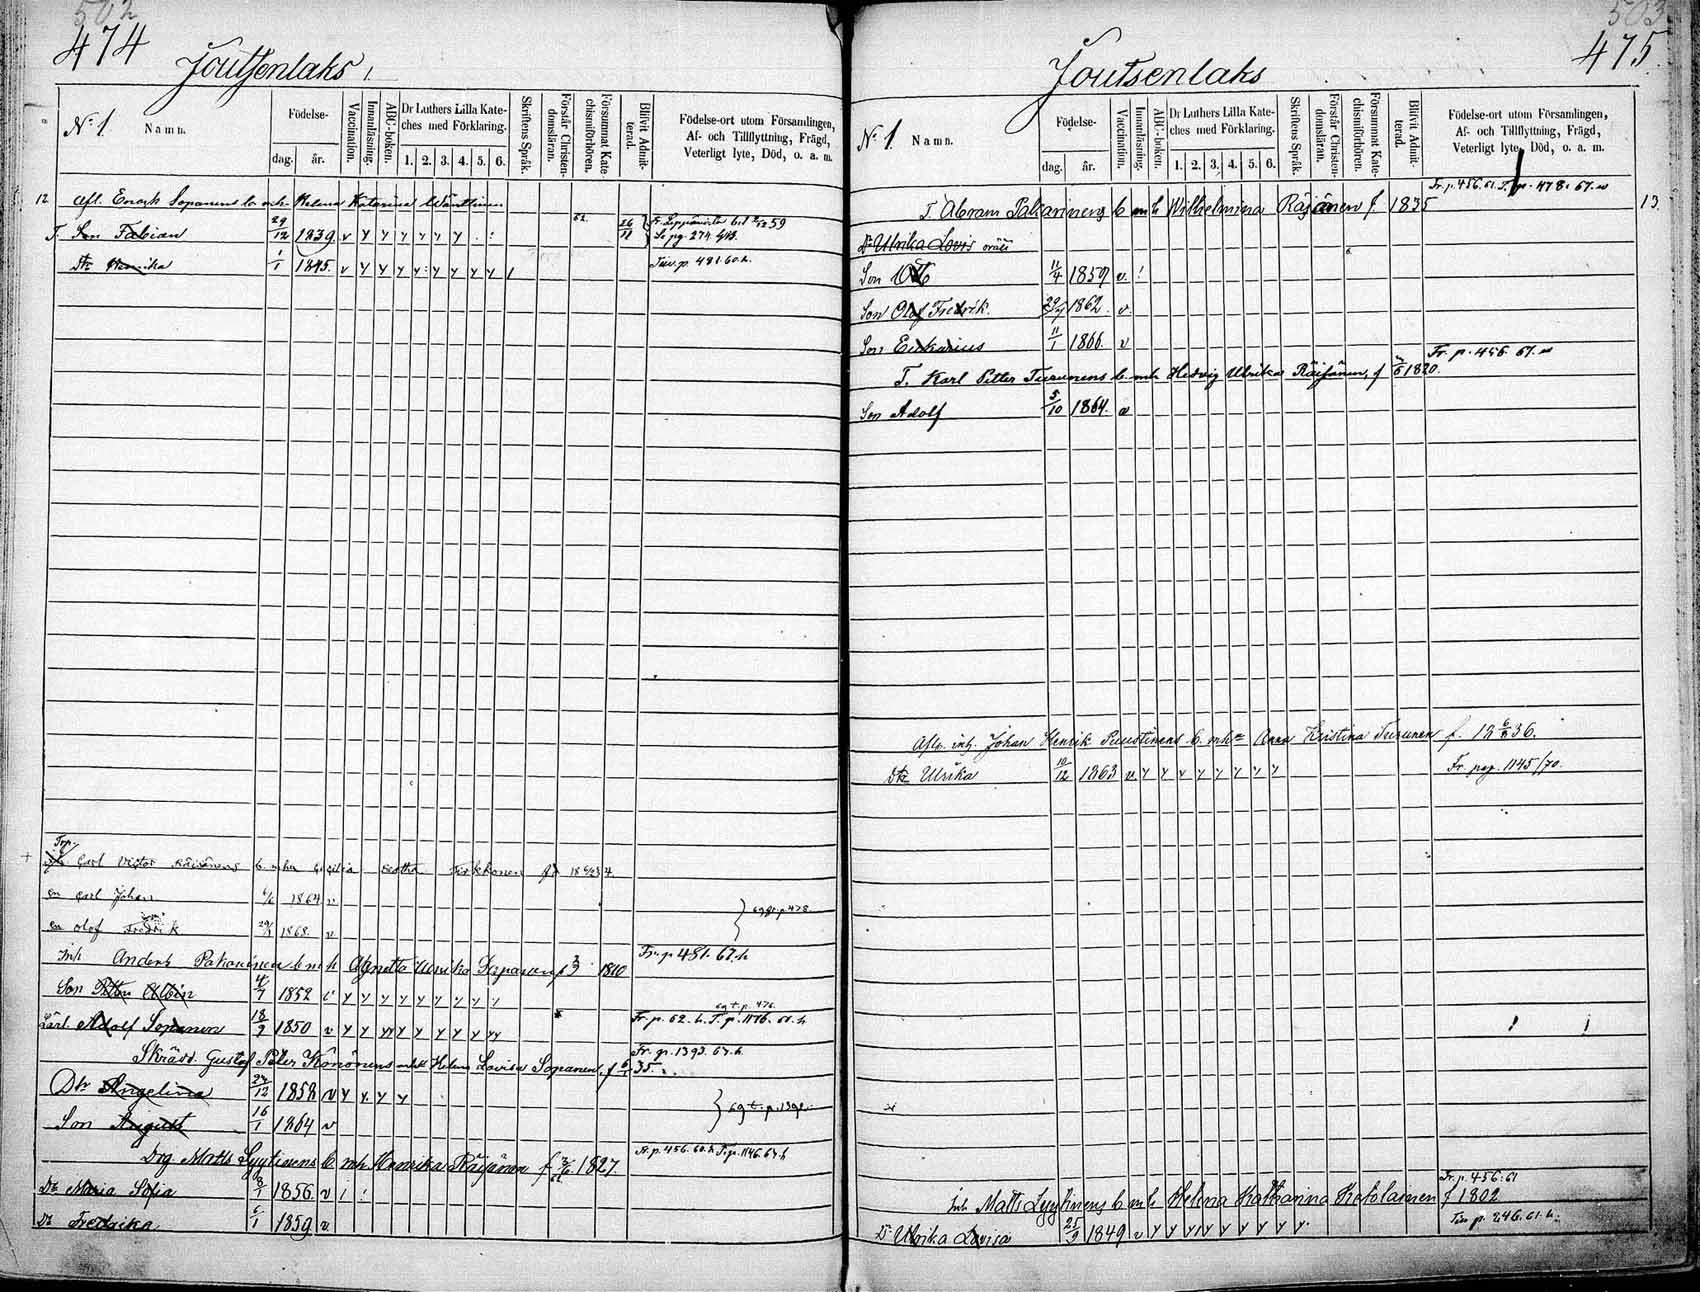 502
474
Joutsenlaks 1
N:o 1 Namn.
Födelse-
dag. år.
Vaccination.
Innanläsning.
ABC-boken.
Dr Luthers Lilla Kate-
ches med Förklaring.
1. 2. 3. 4. 5. 6.
Skriftens Språk.
Förstår Christen-
domsläran.
Försummat Kate-
chismiförhören.
Blifvit Admit-
terad.
Födelse-ort utom Församlingen,
Af- och Tillflyttning, Frägd,
Veterligt lyte, Död, o. a. m.
12 Afl. Enock Sopanens b. mh. Helena Katarina Wänttinen
T. Son Fabian 29/12 1839 v y y y y y y 62 26/11 59
Se pg. 274
Dtr Henrika 1/1 1845. v y y y y y y y y Tiw. p. 481. 60. h.
Trp.
Carl Victor Räisänens b. mha Cecilia Tirkkonen
Carl Johan 1864 v
p 478
Olof Fredrik 29/ 1868. v
Inh Anders Pakarinen b mh Agnetta Ulrika Sopanen f 1810 Fr. p 481. 67. h
Son Petter Albin 4/7 1852 y y y y y y y y y
Adolf Sopanen 18/9 1850 v y y yy y y y y y yy Fr. p. 62. h. T. p. 1146. 61. h
Skrädd. Gustaf Peter Konönens mh Helena Lovisa Sopanen, f 6/1 35. Fr. p. 1393. 67. h.
Dtr Angelina 27/12 1858 v y y y y
69 t. p. 1392
Son August 16/1 1864 v
Drg Matts Lyytinens b. mh. Henrika Räisänen f 1827 p. 456. 60. h T. p. 1146. 67. h
Dr Maria Sofia 8/1 1856. v
Dr Fredrika 6/1 1859 v
503
475
Joutsenlaks
N:o 1 Namn.
Födelse-
dag. år.
Vaccination.
Innanläsning.
ABC-boken.
Dr Luthers Lilla Kate-
ches med Förklaring.
1. 2. 3. 4. 5. 6.
Skriftens Språk.
Förstår Christen-
domsläran.
Försummat Kate-
chismiförhören.
Blifvit Admit-
terad.
Födelse-ort utom Församlingen,
Af- och Tillflyttning, Frägd,
Veterligt lyte, Död, o. a. m.
Fr. p. 456. 61. T. p. 478. 67.
T. Abram Pakarinens b mh Wilhelmina Räsänen f. 1835 13.
Dr Ulrika Lovis
Son Otto 11/4 1859 v
Son Olof Fredrik. 29/7 1862. v
Son Eukarius 11/1 1866. v
Fr. p. 456. 67.
T. Karl Petter Turunens b. mh. Hedvig Ulrika Räisänen, f 1820.
Son Adolf 5/10 1864. v
Johan Henrik Puustinens b. mha Anna Kristina Turunen f. 18 36.
Dtr Ulrika 10/12 1863 v. y y v y y y y y y Fr. pag. 1145/70.
Fr. p. 456. 61
Inh Matts Lyytinens b mh Helena Katharina Kokolainen f 1802
Dr Ulrika Lovisa 21/9 1849 v y y y y y y y y y. Tiw p. 246. 61. h.